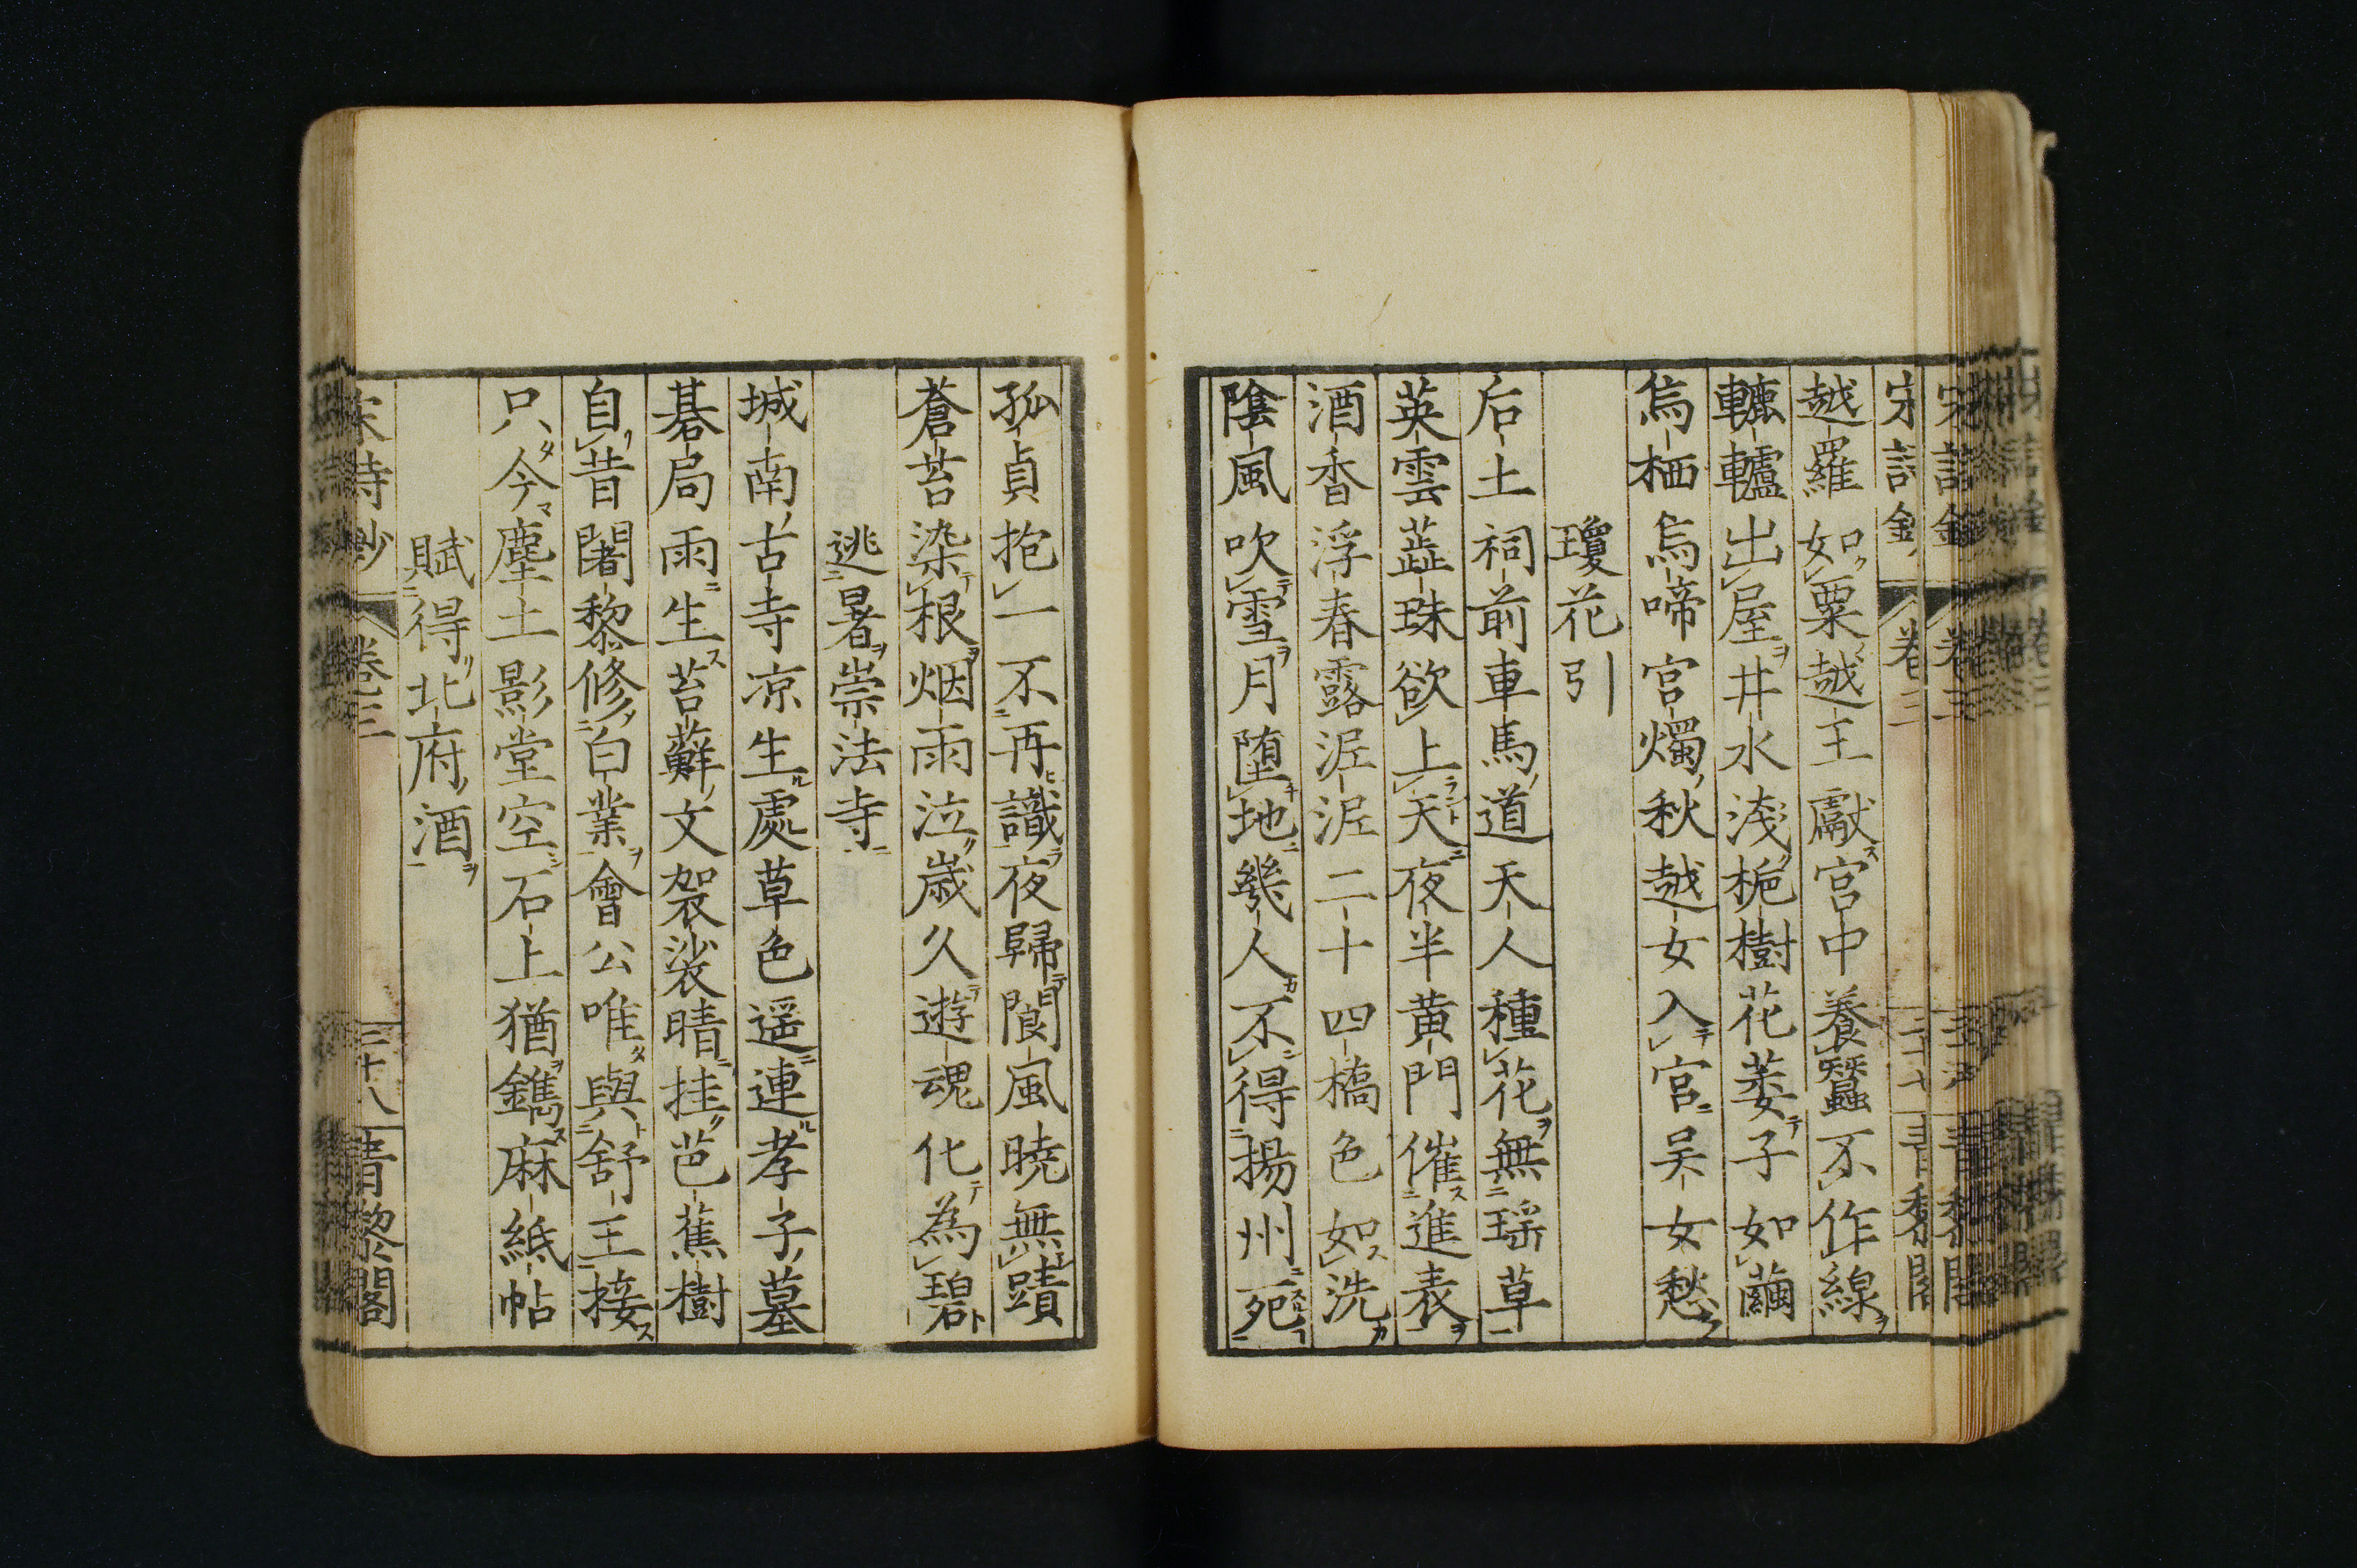 越羅如粟越王獻宮中養蠶不作線
轆轤出屋井水淺栀樹花萎子如繭
烏栖烏啼宮燭秋越女入宮吳女愁
瓊花引
后土祠前車馬道天人種花無瑶草
英雲蘂珠欲上天夜半黄門催進表
酒香浮春露泥泥二十四橋色如洗
陰風吹雪月堕地幾人不得揚州死
孤貞抱一不再識夜歸閬風曉無蹟
蒼苔染根烟雨泣歳久遊魂化為碧
逃暑崇法寺
城南古寺凉生處草色遥連孝子墓
碁局雨生苔蘚文袈裟晴挂芭蕉樹
自昔闍黎修白業會公唯與舒王接
只今塵土影堂空石上猶鐫麻紙帖
賦得北府酒
宋詩鈔 卷三 三十八 青黎閣